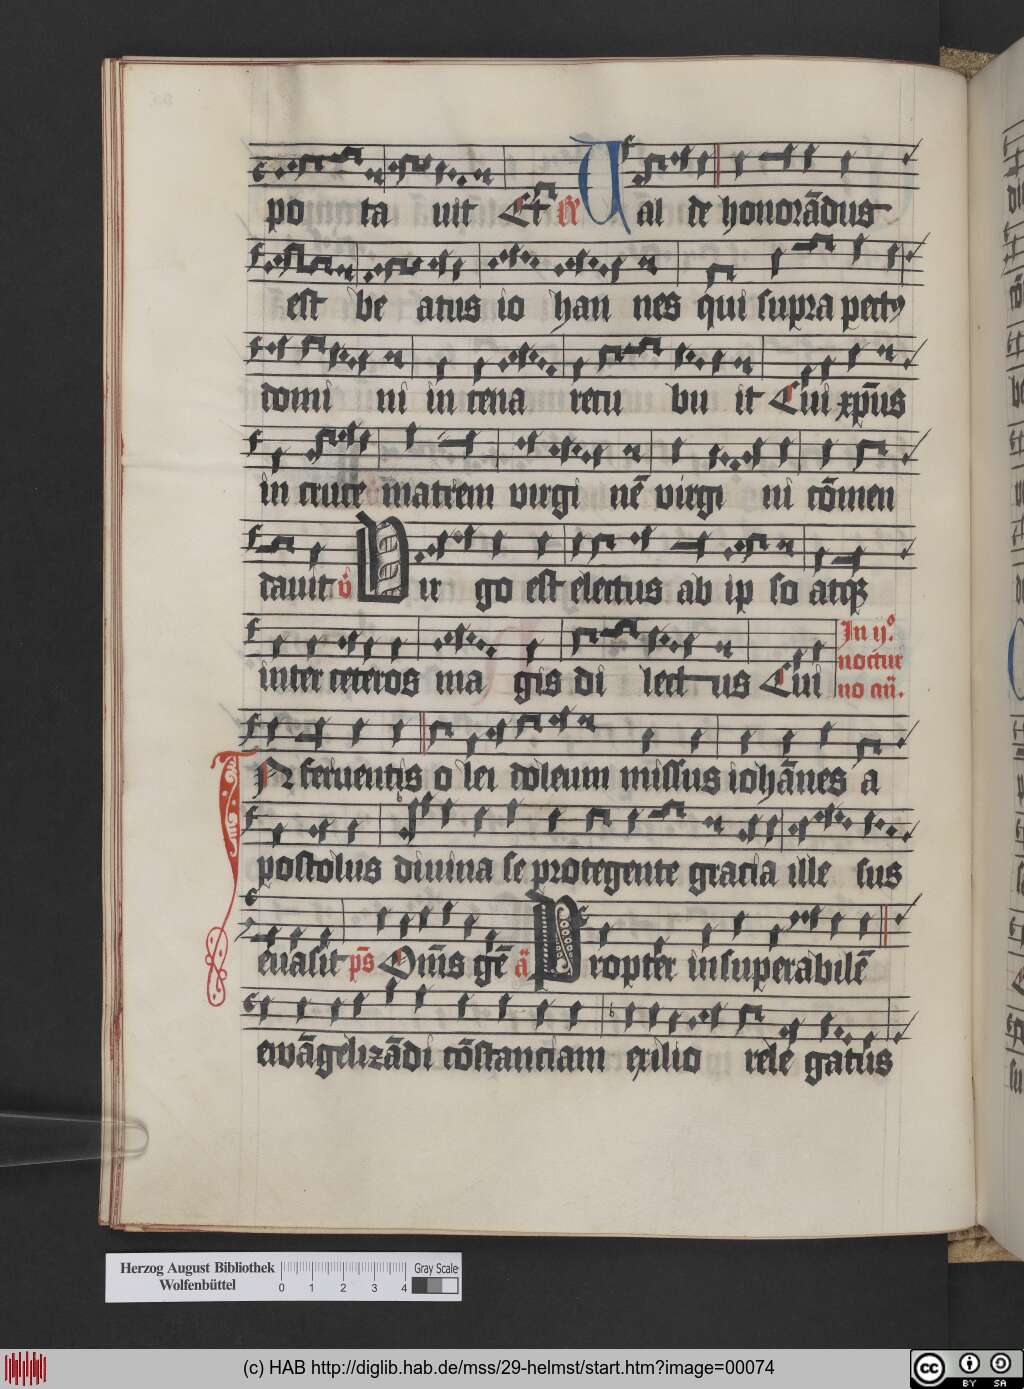 po ta uit Et re Ual de honorādus
est be atus io han nes qui supra pectꝰ
domi ni in cena recu bu it Cui xp̄us
in cruce matrem virgi nē virgi ni cōmen
dauit v̊ Vir go est electus ab ip so atqꝫ
inter ceteros ma gis di lect us Cui
In ij°
noctur
no añ.
IN feruentis o lei doleum missus iohānes a
postolus diuina se protegente gracia ille sus
euasit ps̄ Om̄s gē a᷃ Propter insuperabilē
ewāgelizādi cōstanciam exilio rele gatus
Herzog August Bibliothek
Wolfenbüttel
0 1 2 3 4
Gray Scale
(c) HAB http://diglib.hab.de/mss/29-helmst/start.htm?image=00074
cc BY SA